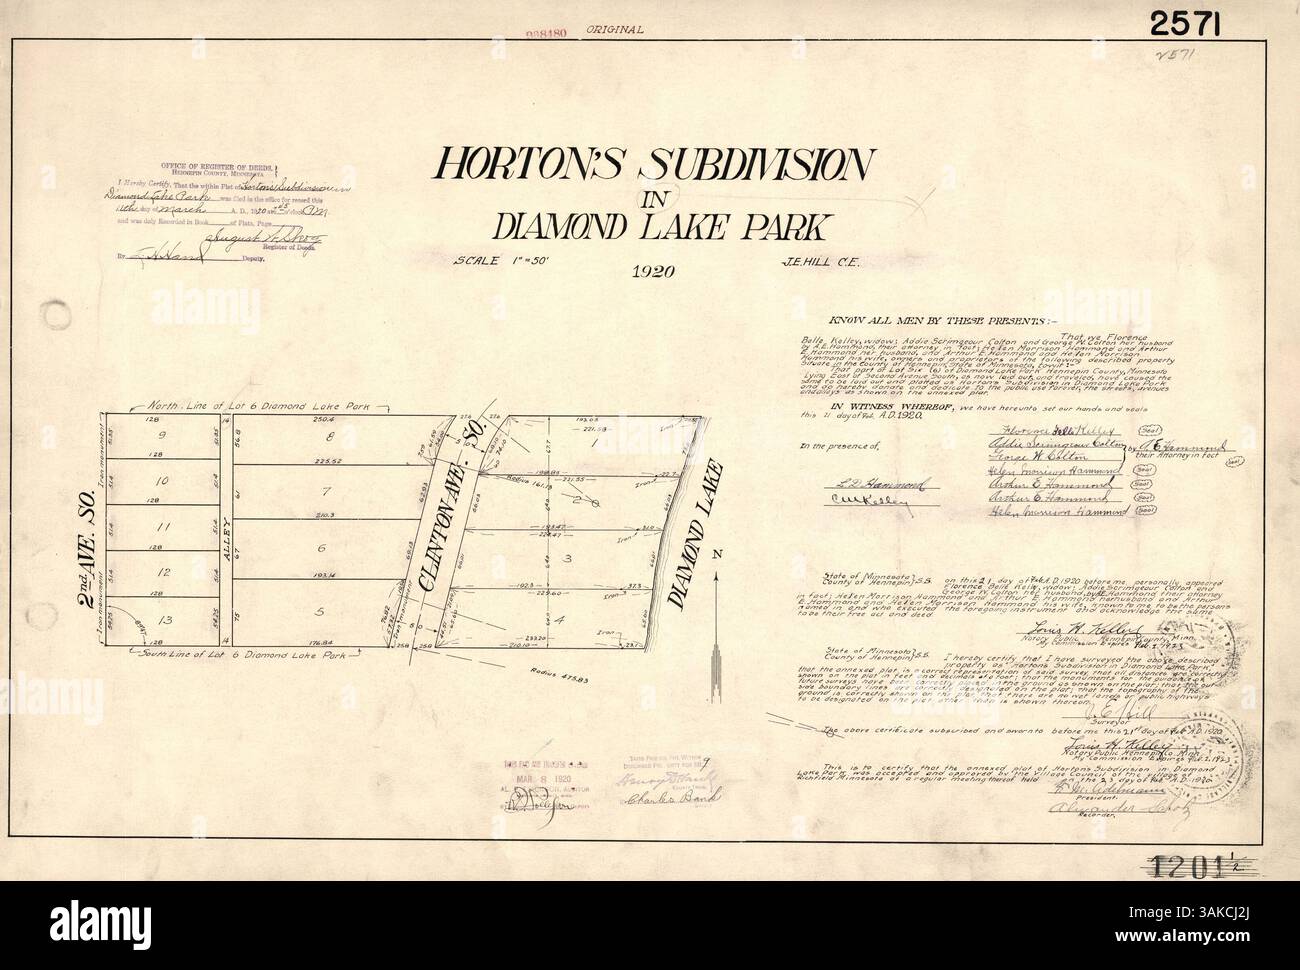 2571
988480 ORIGINAL
2571
HORTON'S SUBDIVISION
IN
DIAMOND LAKE PARK
SCALE 1"=50'
1920
J.E. HILL C.E.
OFFICE OF REGISTER OF DEEDS,
HENNEPIN COUNTY, MINNESOTA
I Hereby Certify, That the within Plat of Hortons Subdivision in
Diamond Lake Park was filed in the office for record this
11th day of March A. D., 1920 at o'clock P.M
and was duly Recorded in Book of Plats, Page
August W. Skog
Register of Deeds.
By Deputy.
KNOW ALL MEN BY THESE PRESENTS:-
That we Florence
Belle Kelley, widow; Addie Scrimgeour Colton and George W. Colton her husband
by A.E. Hammond, their attorney in fact; Helen Morrison Hammond and Arthur
E. Hammond her husband, and Arthur E. Hammond and Helen Morrison
Hammond his wife, owners and proprietors of the following described property
Situate in the County of Hennepin, State of Minnesota, towit:-
That part of Lot Six (6) of Diamond Lake Park Hennepin County, Minnesota
Lying East of Second Avenue South, as now laid out and traveled, have caused the
same to be laid out and platted as Horton's Subdivision in Diamond Lake Park
and do hereby donate and dedicate to the public use forever, the streets, avenues
and alleys as shown on the annexed plat.
IN WITNESS WHEREOF, we have hereunto set our hands and seals
this 21 day of Feb. A.D. 1920.
In the presence of,
Florence Belle Kelley Seal
Addie Scrimgeour Colton by A E Hammond
George W. Colton their Attorney in fact Seal
Helen Morrison Hammond Seal
Arthur E. Hammond Seal
Arthur E Hammond Seal
Helen Morrison Hammond Seal
L D Hammond
C W Kelley
North Line of Lot 6 Diamond Lake Park
128 250.4 27.6 27.6 193.05
221.58
9 8 1
128 225.52
10 7 2
Radius 161.13 221.55 22.7 Iron
128 210.3 193.47 31.0
11 6 3
128 193.14 192.3 37.3
229.60 Iron
12 5 4
128
13
128 176.84 25.8 25.8 210.10 233.20 23.1 Iron
South Line of Lot 6 Diamond Lake Park
Radius 475.83
2nd AVE. SO.
ALLEY
CLINTON AVE. SO.
DIAMOND LAKE
Iron monument
Iron monument
N
State of Minnesota
County of Hennepin S.S. on this 21 day of Feb. A.D. 1920 before me, personally appeared
Florence Belle Kelley, widow; Addie Scrimgeour Colton and
George W. Colton her husband, by A.E. Hammond their attorney
in fact; Helen Morrison Hammond and Arthur E. Hammond her husband and Arthur
E. Hammond and Helen Morrison Hammond his wife, known to me to be the persons
named in and who executed the foregoing instrument and acknowledge the same
to be their free act and deed
Louis H. Kelley
Notary Public Hennepin County, Minn.
My Commission Expires Feb. 2, 1923
State of Minnesota
County of Hennepin S.S. I hereby certify that I have surveyed the above described
property as Horton's Subdivision in Diamond Lake Park,
that the annexed plat is a correct representation of said survey, that all distances are correctly
shown on the plat in feet and decimals of a foot; that the monuments for the guidance of
future surveys have been correctly placed in the ground as shown on the plat; that the out-
side boundary lines are correctly designated on the plat; that the topography of the
ground is correctly shown on the plat, that there are no wet lands or public highways
to be designated on the plat other than is shown thereon.
J. E. Hill
Surveyor
The above certificate subscribed and sworn to before me this 21st day of Feb. A.D. 1920
Louis H. Kelley
Notary Public Hennepin Co. Minn.
My Commission Expires Feb. 2, 1923
This is to certify that the annexed plat of Horton's Subdivision in Diamond
Lake Park was accepted and approved by the Village Council of the village of
Richfield Minnesota at a regular meeting thereof held on the 23 day of Feb. A.D. 1920
President.
Recorder.
MAR 8 1920
Charles Bank
1201 1/2
alamy
Image ID: 3AKCJ2J
www.alamy.com